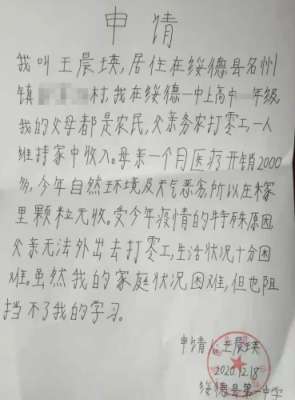 申请
我叫王晨瑛,居住在绥德县名州
镇村,我在绥德一中上高中年级。
我的父母都是农民,父亲务农打零工一人
维持家中收入。母亲一个月医疗开销2000
多,今年自然环境及天气恶劣,所以在村家
里颗粒无收。受今年疫情的特殊原因
父亲无法外出去打零工,生活状况十分困
难。虽然我的家庭状况困难,但也阻
挡不了我的学习。
申请人:王晨瑛
2020.12.18
绥德县第一中学